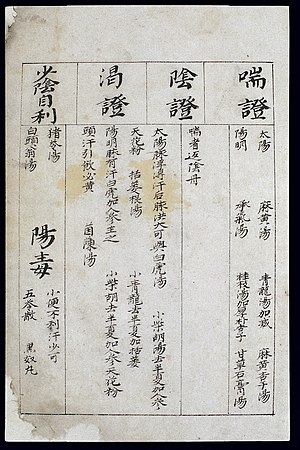 喘證
太陽 麻黃湯 青龍湯加減 麻黃杏子湯
陽明 承氣湯 桂枝湯加厚朴杏子 甘草石膏湯
陰證
喘者
渴證
太陽脉浮浮汗后脉洪大可與白虎湯 小柴胡湯去半夏加人參
天花粉 栝蔞根湯 小青龍去半夏加栝蔞
陽明脉 有汗白虎加人參主之 小柴胡去半夏加人參天花粉
頭汗引飲必黃 茵陳湯
少陰自利
猪苓湯
白頭翁湯
陽毒
小便不利汗少可
五苓散 黑奴丸